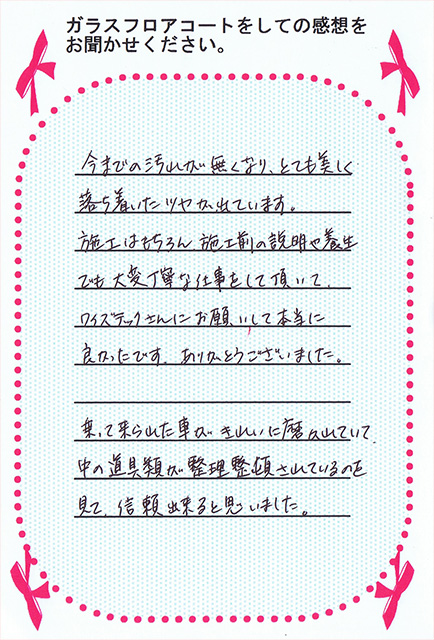 ガラスフロアコートをしての感想を
お聞かせください。
今までの汚れが無くなり、とても美しく
落ち着いたツヤが出ています。
施工はもちろん、施工前の説明や養生
でも大変丁寧な仕事をして頂いて、
ワイズテックさんにお願いして本当に
良かったです。ありがとうございました。
乗って来られた車がきれいに磨かれていて、
中の道具類が整理整頓されているのを
見て、信頼出来ると思いました。